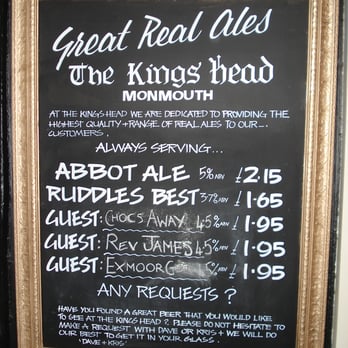 Great Real Ales
The Kings Head
MONMOUTH
AT THE KINGS HEAD WE ARE DEDICATED TO PROVIDING THE
HIGHEST QUALITY + RANGE OF REAL ALES TO OUR...
CUSTOMERS.
ALWAYS SERVING...
ABBOT ALE 5% ABV £2.15
RUDDLES BEST 3.7% ABV £1.65
GUEST: CHOCS AWAY 4.5% ABV £1.95
GUEST: REV JAMES 4.5% ABV £1.95
GUEST: EXMOOR % ABV £1.95
ANY REQUESTS ?
HAVE YOU FOUND A GREAT BEER THAT YOU WOULD LIKE
TO SEE AT THE KINGS HEAD ? PLEASE DO NOT HESITATE TO
MAKE A REQUEST WITH DAVE OR KRIS + WE WILL DO
OUR BEST TO GET IT IN YOUR GLASS.
'DAVE + KRIS'